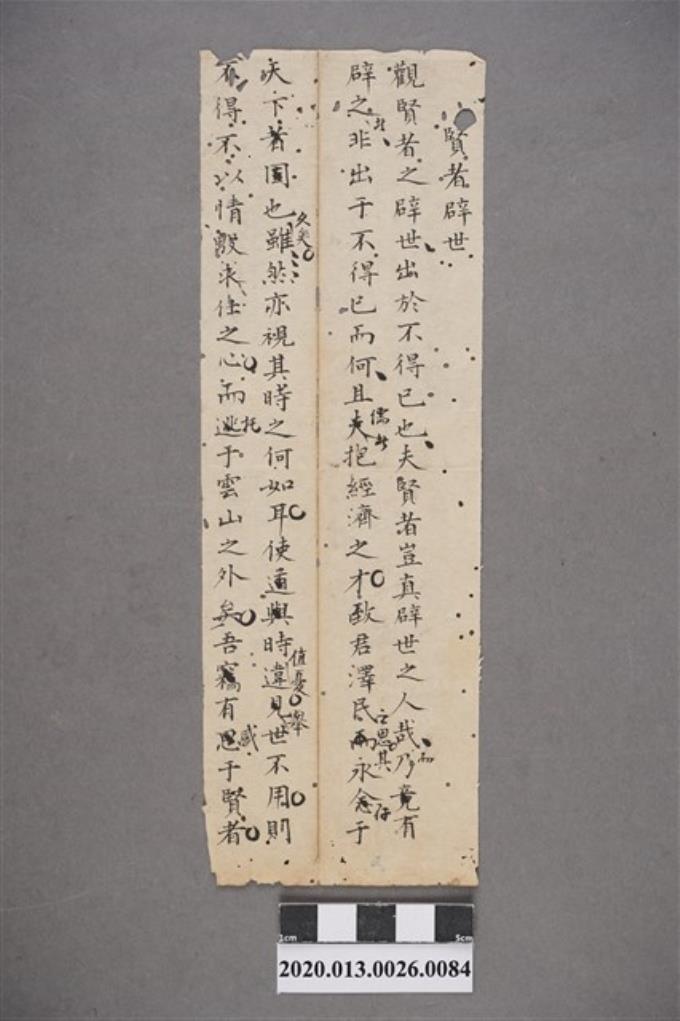 賢者辟世
觀賢者之辟世出於不得已也夫賢者豈真辟世之人哉乃竟有
而
辟之非出于不得已而何且夫抱經濟之才致君澤民而永念于
儒者
之思其
存
天下者固也雖然亦視其時之何如耳使道與時違見世不用則
久矣
值憂
舉
不得不以情殷求仕之心而逃于雲山之外矣吾竊有思于賢者
托
感
1cm
5cm
2020.013.0026.0084